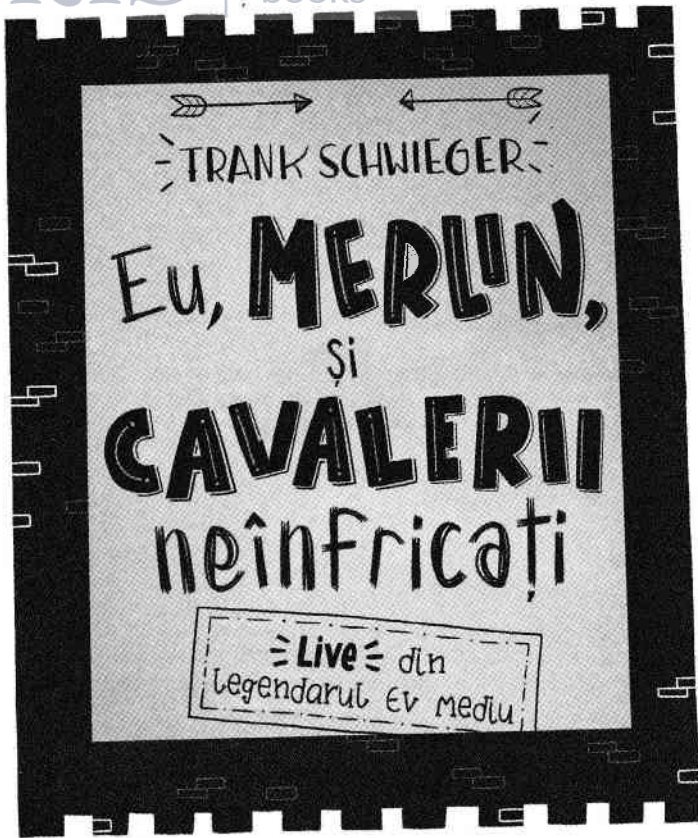 BOOKS
TRANK SCHWIEGER
Eu, MERLIN,
și
CAVALERII
neînfricați
Live din
legendarul Ev mediu